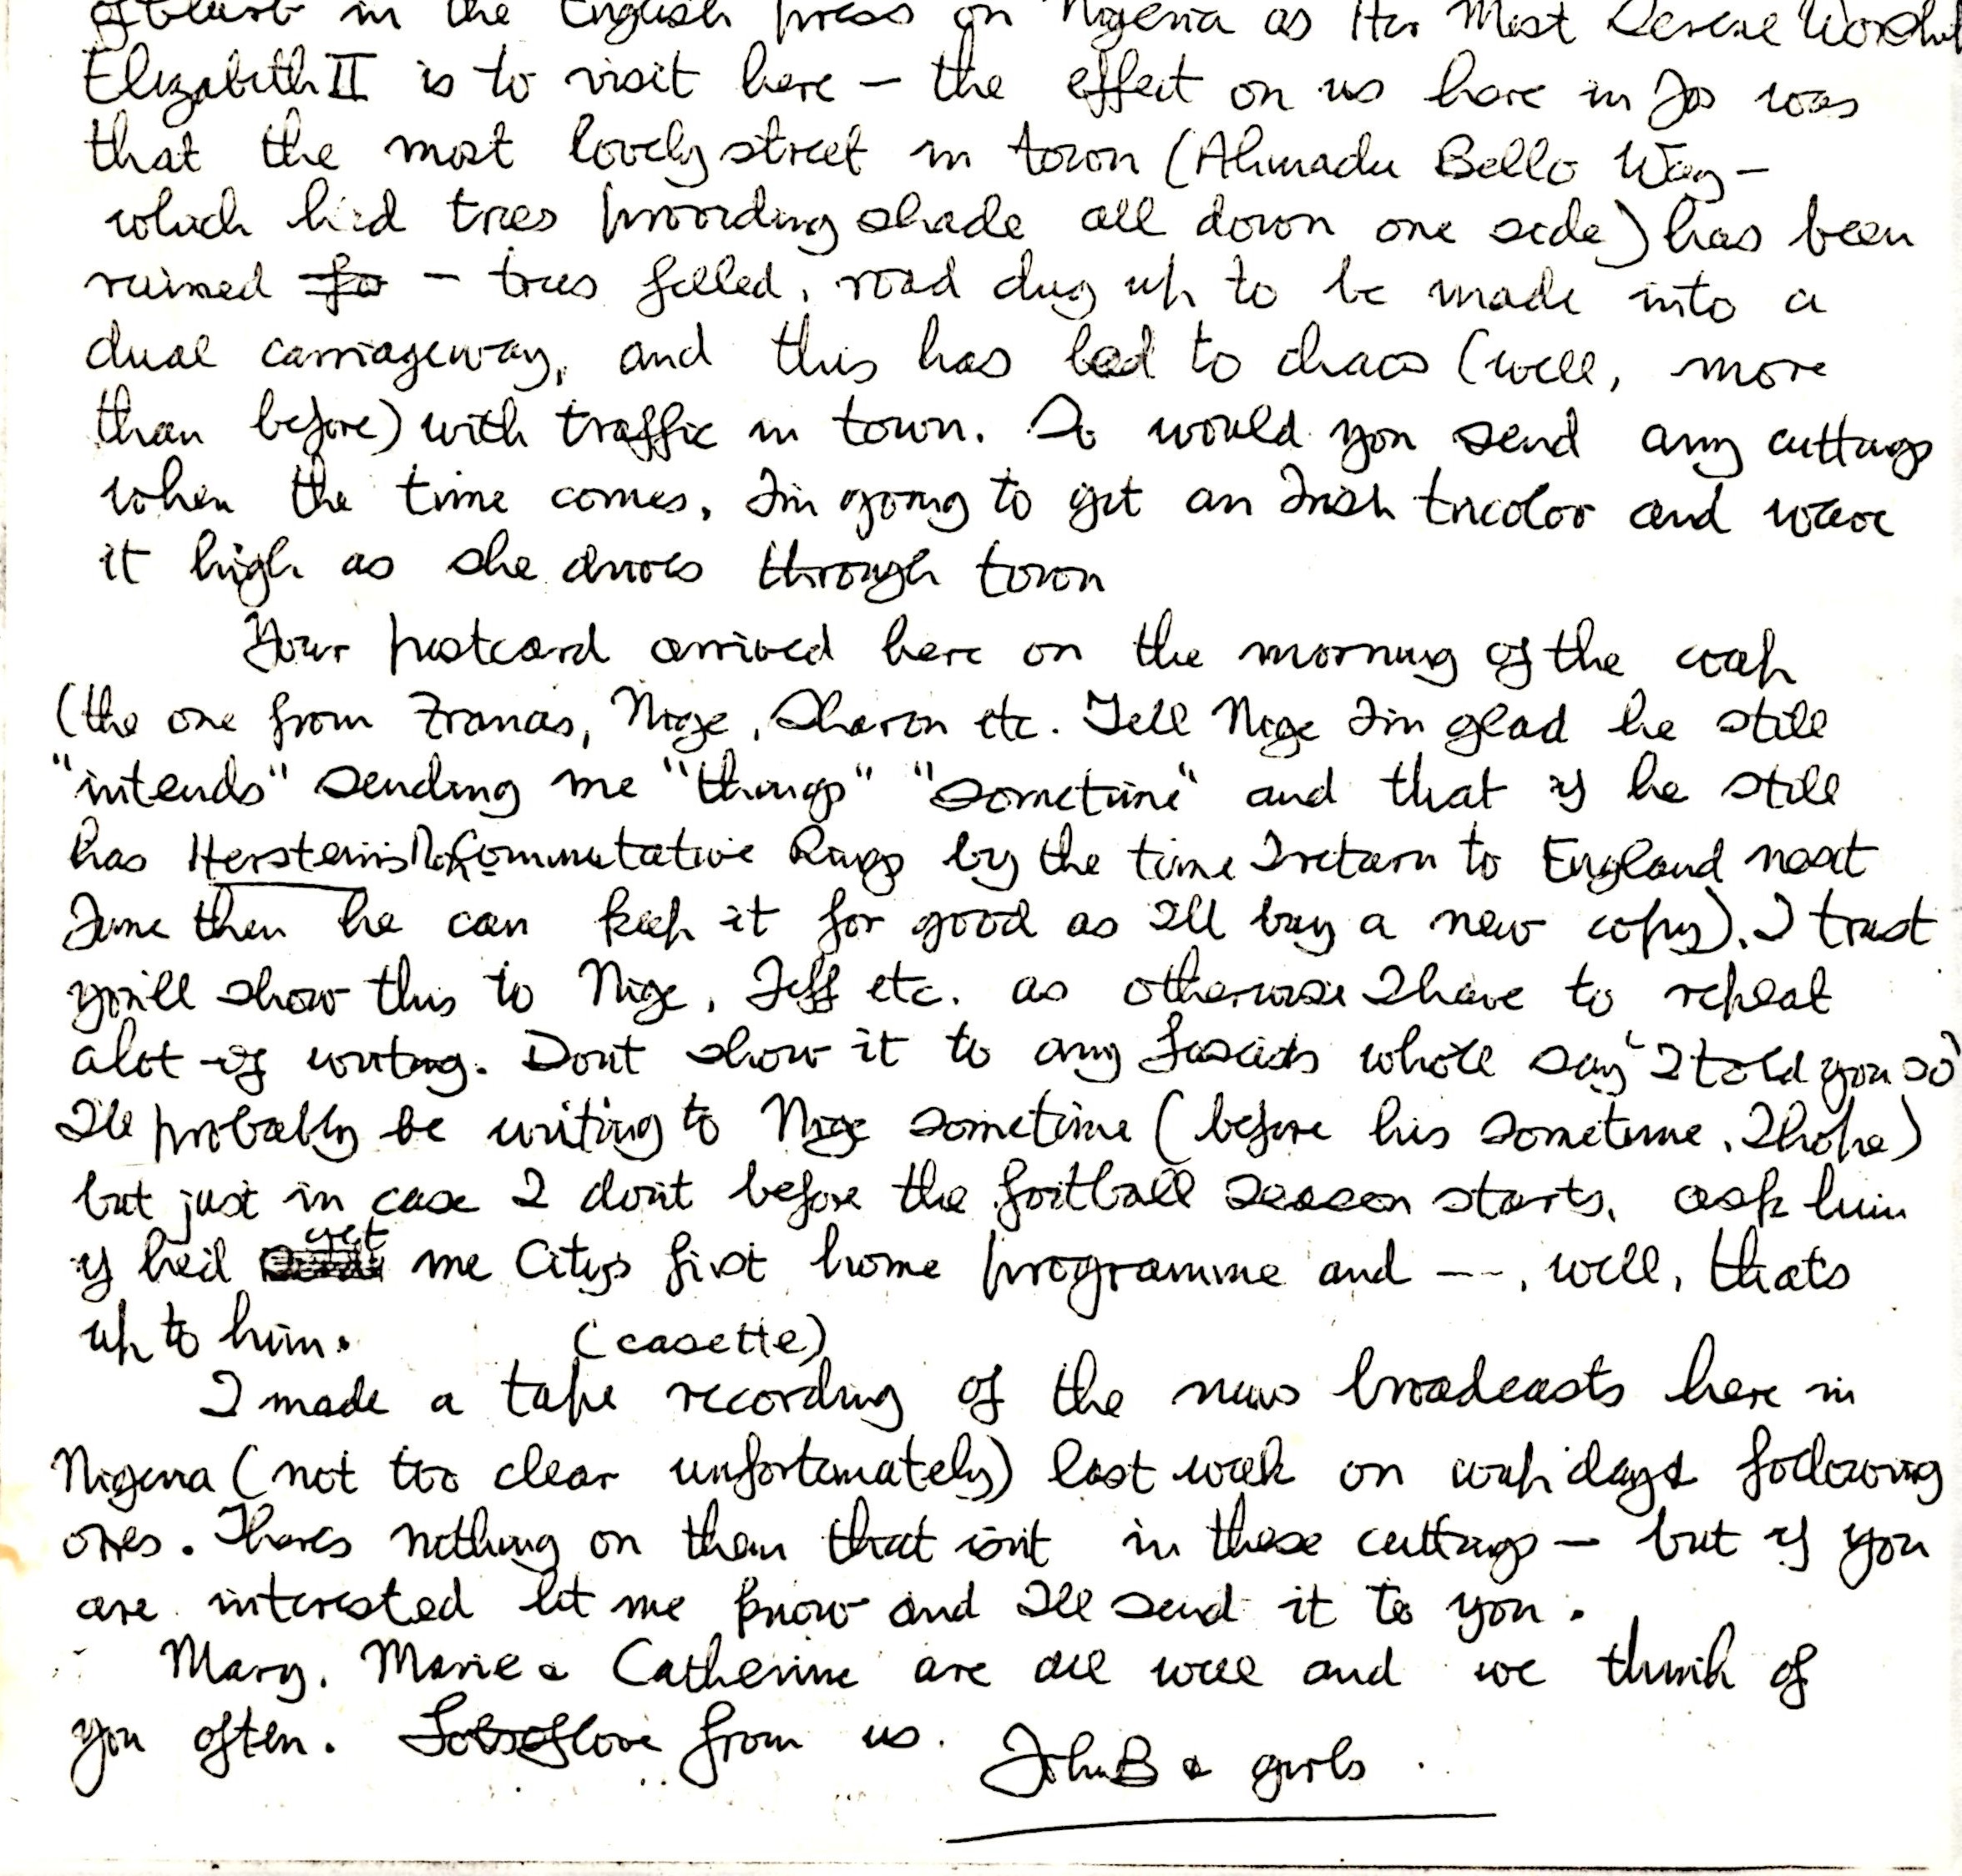 in the English press on Nigeria as Her Most Serene Worship
Elizabeth II is to visit here – the effect on us here in Jos was
that the most lovely street in town (Ahmadu Bello Way –
which had trees providing shade all down one side) has been
ruined – trees felled, road dug up to be made into a
dual carriageway, and this has led to chaos (well, more
than before) with traffic in town. So would you send any cuttings
when the time comes. I'm going to get an Irish tricolor and wave
it high as she drives through town
Your postcard arrived here on the morning of the coup
(the one from Francis, Nige, Sharon etc. Tell Nige I'm glad he still
"intends" sending me "things" "sometime" and that if he still
has Herstein's NonCommutative Rings by the time I return to England next
June then he can keep it for good as I'll buy a new copy). I trust
you'll show this to Nige, Jeff etc. as otherwise I have to repeat
alot of writing. Dont show it to any fascists who'll say 'I told you so'
I'll probably be writing to Nige sometime (before his sometime, I hope)
but just in case I don't before the football season starts, ask him
if he'd get me City's first home programme and ---, well, thats
up to him.
(casette)
I made a tape recording of the news broadcasts here in
Nigeria (not too clear unfortunately) last week on coup day & following
ones. Theres nothing on them that isn't in these cuttings – but if you
are interested let me know and I'll send it to you.
Mary, Marie & Catherine are all well and we think of
you often. Lots of love from us.
John B & girls.